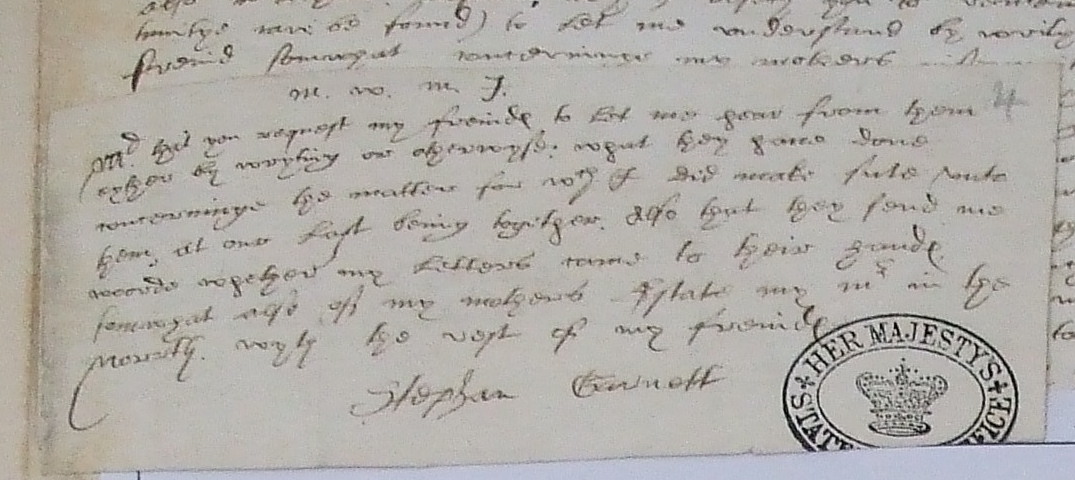 tunitye can be found) to let me vnderstand by wryti
freind somwhat concerninge my mothers
m. w. m. J.
4
Md. that you request my freinds to let me hear from them
eyther by wryting or otherwyse, what they haue done
concerninge the matter for wch I did make sute vnto
them, at our last being togither. Also that they send me
worde whether my letters came to their hands
somwhat also of my mothers Estate my mr in the
North. wyth the rest of my freinds
Stephan
HER MAJESTY'S
STATE OFFICE